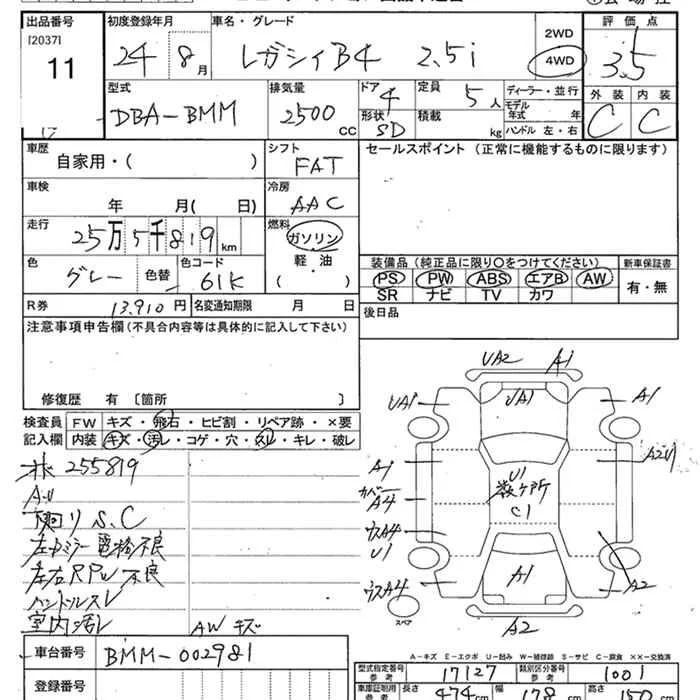 出品番号 初度登録年月 車名・グレード 評価点
[2037]
11
24 8月 レガシィB4 2.5i 2WD 4WD 3.5
型式 排気量 ドア 定員 ディーラー・並行 外装 内装
DBA-BMM 2500 CC 4 5人 モデル年式 年 C C
形状 積載 kg ハンドル 左・右
SD
車歴 シフト セールスポイント (正常に機能するものに限ります)
自家用・( ) FAT
車検 冷房
年 月( 日) AAC
走行 燃料
25万5千819km ガソリン
色 色コード 軽油
グレー 色替 61K ( )
装備品 (純正品に限り○をつけてください) 新車保証書
PS PW ABS エアB AW 有・無
SR ナビ TV カワ
R券 13,910円 名変通知期限 月 日
後日品
注意事項申告欄(不具合内容等は具体的に記入して下さい)
修復歴 有 〔箇所 〕
検査員 FW キズ・飛石・ヒビ割・リペア跡・×要
記入欄 内装 キズ・汚レ・コゲ・穴・スレ・キレ・破レ
255819
A・U
下回リ S.C
左ドアミラー電格不良
左右RPW不良
ハンドルスレ
室内汚レ AWキズ
UA2 A1
UA1 UA1 A1
A1 U1 A2U1
カバーA4 数ヶ所
C1
ウスA4
U1
ウスA4 A1 A2
スペア
A2
A-キズ E-エクボ U-凹み W-補修跡 S-サビ C-腐食 XX-交換済
車台番号 BMM-002981
型式指定番号 17127 類別区分番号 1001
参考 参考
登録番号
車庫証明用 長さ 474cm 幅 178cm 高さ 150cm
参考